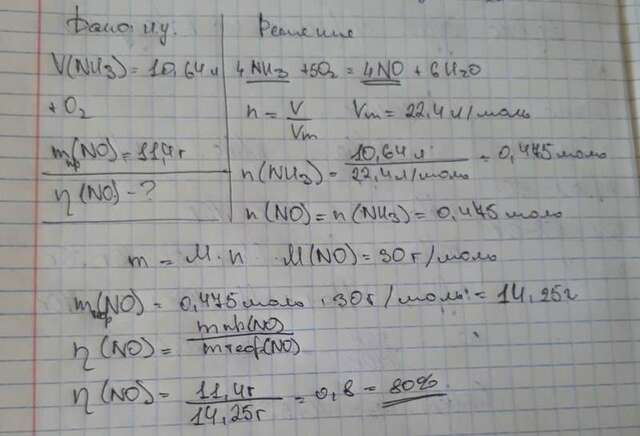 Дано н.у.
Решение
V(NH3) = 10,64 л
+ O2
mпр(NO) = 11,4 г
η(NO) - ?
4NH3 + 5O2 = 4NO + 6H2O
n = V/Vm Vm = 22,4 л/моль
n(NH3) = 10,64 л/22,4 л/моль = 0,475 моль
n(NO) = n(NH3) = 0,475 моль
m = M · n M(NO) = 30 г/моль
mтеор(NO) = 0,475 моль · 30 г/моль = 14,25 г
η(NO) = mпр(NO)/mтеор(NO)
η(NO) = 11,4 г/14,25 г = 0,8 = 80%